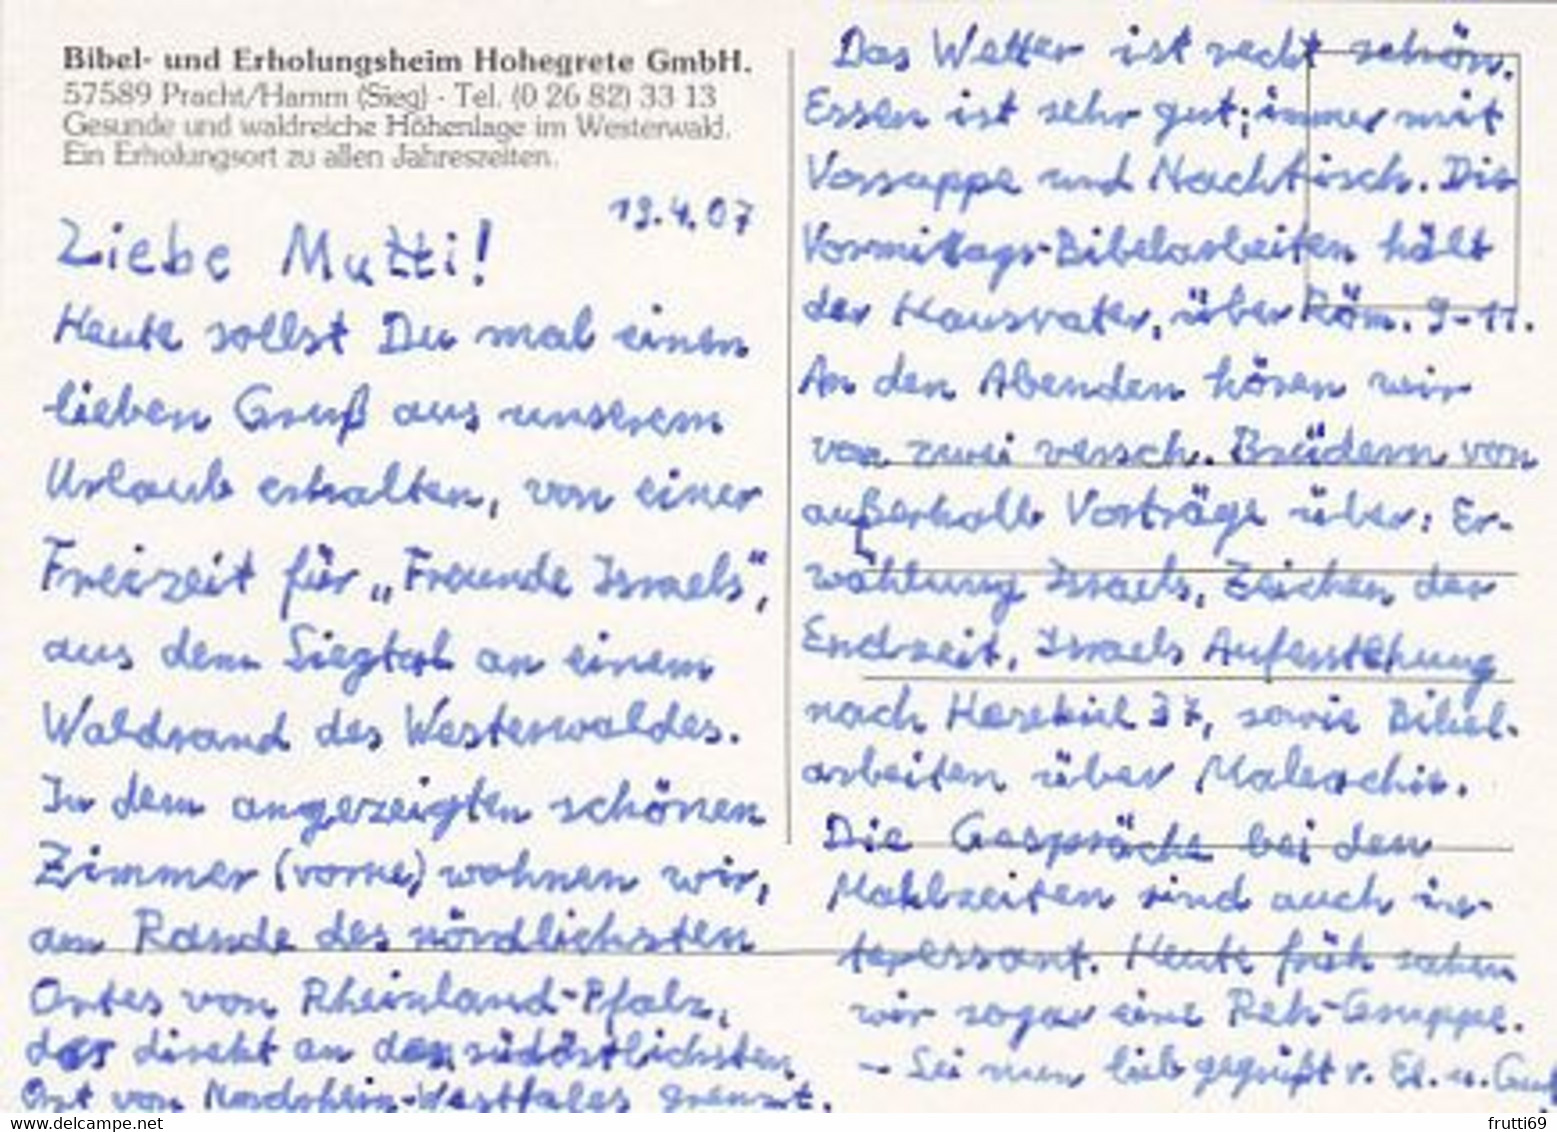 Bibel- und Erholungsheim Hohegrete GmbH.
57589 Pracht/Hamm (Sieg) - Tel. (0 26 82) 33 13
Gesunde und waldreiche Höhenlage im Westerwald.
Ein Erholungsort zu allen Jahreszeiten.
19.4.07
Liebe Mutti!
Heute sollst Du mal einen
lieben Gruß aus unserem
Urlaub erhalten, von einer
Freizeit für „Freunde Israels",
aus dem Siegtal an einem
Waldrand des Westerwaldes.
In dem angezeigten schönen
Zimmer (vorne) wohnen wir,
am Rande des nördlichsten
Ortes von Rheinland-Pfalz,
der direkt an den südöstlichsten
Ort von Nordrhein-Westfalen grenzt.
Das Wetter ist recht schön.
Essen ist sehr gut; immer mit
Vorsuppe und Nachtisch. Die
Vormittags-Bibelarbeiten hält
der Hausvater, über Röm. 9-11.
An den Abenden hören wir
von zwei versch. Brüdern von
außerhalb Vorträge über: Er-
wählung Israels, Zeichen der
Endzeit, Israels Auferstehung
nach Hesekiel 37, sowie Bibel-
arbeiten über Maleachi.
Die Gespräche bei den
Mahlzeiten sind auch in-
teressant. Heute früh sahen
wir sogar eine Reh-Gruppe.
- Sei nun lieb gegrüßt v. u.
www.delcampe.net
frutti69